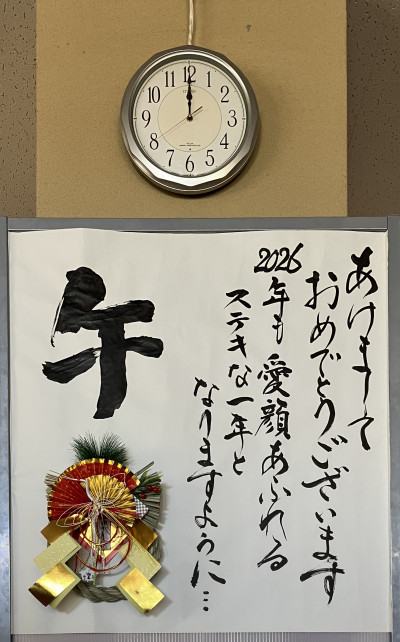 12
1
2
3
4
5
6
7
8
9
10
11
あけまして
おめでとうございます
2026
年も愛顔あふれる
ステキな一年と
なりますように…
午